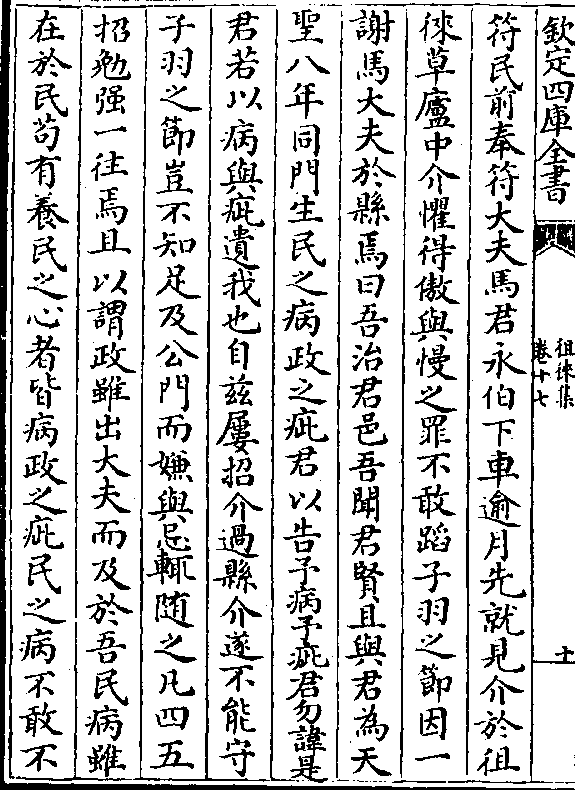 欽定四庫全書
徂徠集
卷十七
十
符民前奉符大夫馬君永伯下車逾月先就見介於徂
徠草廬中介懼得傲與慢之罪不敢蹈子羽之節因一
謝馬大夫於縣焉曰吾治君邑吾聞君賢且與君為天
聖八年同門生民之病政之疵君以告予病予疵君勿諱是
君若以病與疵遺我也自茲屢招介過縣介遂不能守
子羽之節豈不知足及公門而嫌與忌輒随之凡四五
招勉强一往焉且以謂政雖出大夫而及於吾民病雖
在於民苟有養民之心者皆病政之疵民之病不敢不